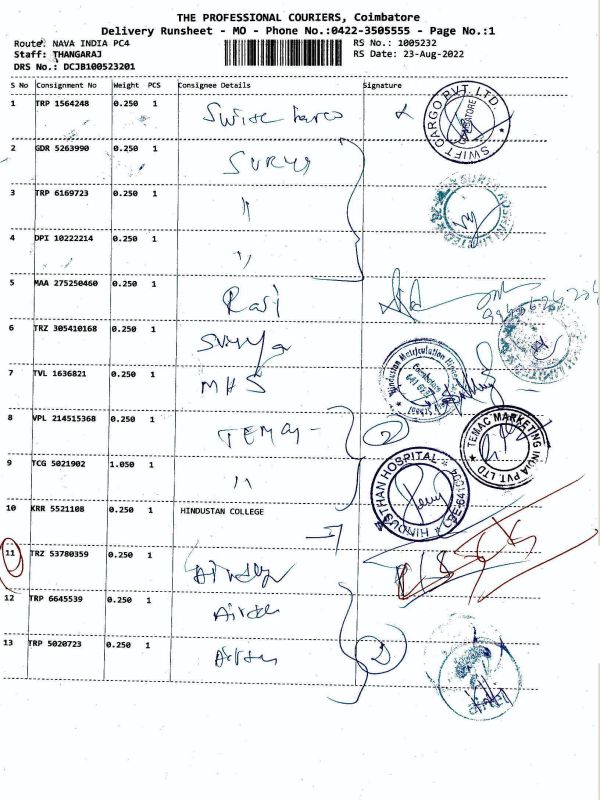 THE PROFESSIONAL COURIERS, Coimbatore
Delivery Runsheet - MO - Phone No.:0422-3505555 - Page No.:1
Route: NAVA INDIA PC4 RS No.: 1005232
Staff: THANGARAJ RS Date: 23-Aug-2022
DRS No.: DCJB100523201
S No Consignment No Weight PCS Consignee Details Signature
1 TRP 1564248 0.250 1
SWIFT CARGO PVT. LTD. COIMBATORE
2 GDR 5263990 0.250 1 Surya
3 TRP 6169723 0.250 1 "
4 DPI 10222214 0.250 1 "
5 MAA 275250460 0.250 1 Rasi
6 TRZ 305410168 0.250 1 Surya
7 TVL 1636821 0.250 1 MHS
Hindustan Matriculation School Coimbatore
8 VPL 214515368 0.250 1 TEMAC 2
TEMAC MARKETING INDIA PVT. LTD
9 TCG 5021902 1.050 1 "
HINDUSTHAN HOSPITAL
10 KRR 5521108 0.250 1 HINDUSTAN COLLEGE
11 TRZ 53780359 0.250 1
12 TRP 6645539 0.250 1
13 TRP 5020723 0.250 1